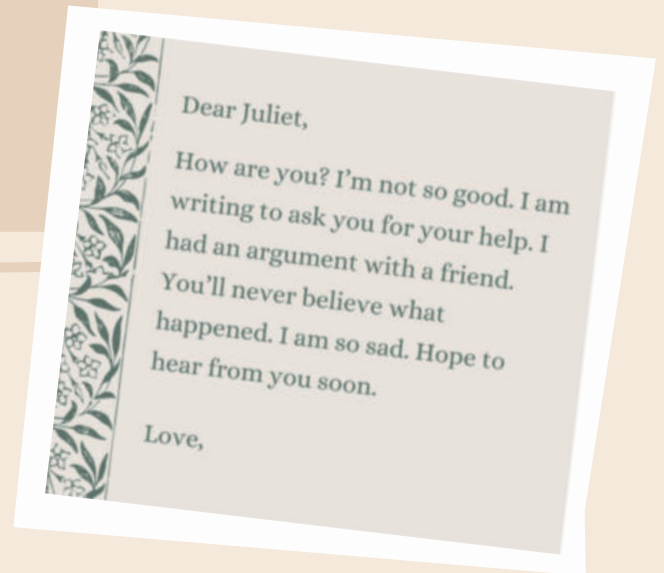 Dear Juliet,
How are you? I’m not so good. I am
writing to ask you for your help. I
had an argument with a friend.
You’ll never believe what
happened. I am so sad. Hope to
hear from you soon.
Love,